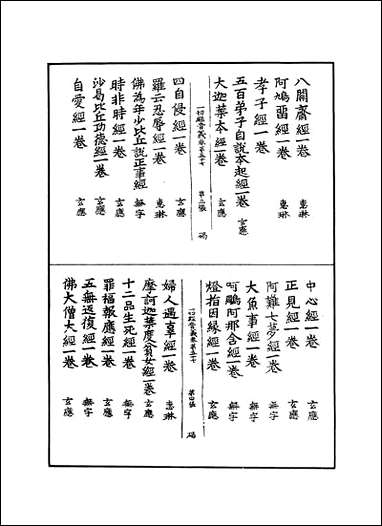 八關齋經一卷 慧琳
阿鳩留經一卷 慧琳
孝子經一卷
五百弟子自說本起經一卷 玄應
大迦葉本經一卷 玄應
一切經音義卷第五十七 第三張 碣
四自侵經一卷 玄應
羅云忍辱經一卷 慧琳
佛為年少比丘說正事經 無字
時非時經一卷 玄應
沙曷比丘功德經一卷 玄應
自愛經一卷 玄應
中心經一卷 玄應
正見經一卷 玄應
阿難七夢經一卷 無字
大魚事經一卷 無字
呵鵰阿那含經一卷 無字
燈指因緣經一卷 玄應
一切經音義卷第五十七 第四張 碣
婦人遇辜經一卷 慧琳
摩訶迦葉度貧女經一卷 玄應
十二品生死經一卷 無字
罪福報應經一卷 玄應
五無返復經一卷 無字
佛大僧大經一卷 玄應